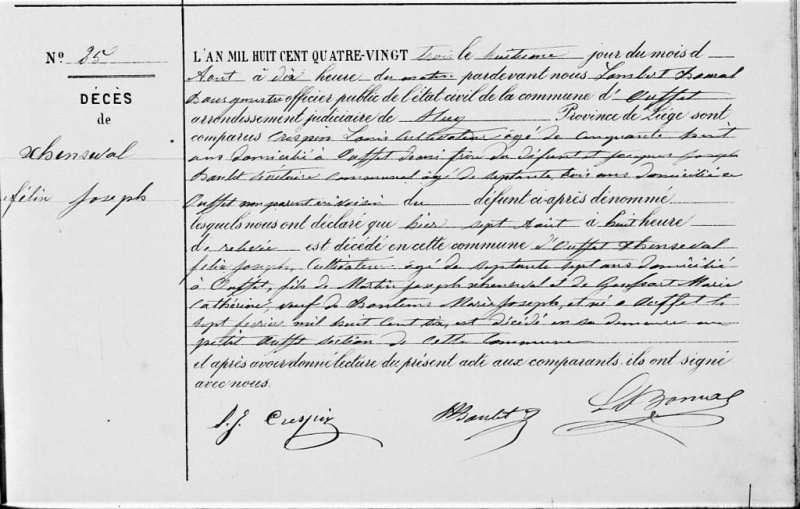 N° 25
DÉCÈS
de
Xhenseval
félix Joseph
L'AN MIL HUIT CENT QUATRE-VINGT trois le huitieme jour du mois d
Aout à dix heure du matin pardevant nous Lambert Bonval
Bourgmestre officier public de l'état civil de la commune d' Ouffet
arrondissement judiciaire de Huy Province de Liége sont
comparus Crespin Louis Cultivateur âgé de cinquante huit
ans domicilié à Ouffet demi frère du défunt et Jacques Joseph
Baulet Secrétaire Communal âgé de septante trois ans domicilié à
Ouffet non parent ni voisin du défunt ci-après dénommé
lesquels nous ont déclaré que hier sept Aout à huit heure
de relevée est décédé en cette commune d'Ouffet Xhenseval
félix Joseph, Cultivateur âgé de septante sept ans domicilié
à Ouffet, fils de Martin Joseph Xhenseval et de Marie
Cathérine, veuf de Marie Joseph, et né à Ouffet le
sept février mil huit cent six, est décédé en sa demeure au
petit Ouffet section de cette Commune
et après avoir donné lecture du présent acte aux comparants, ils ont signé
avec nous.
Crespin Baulet Bonval